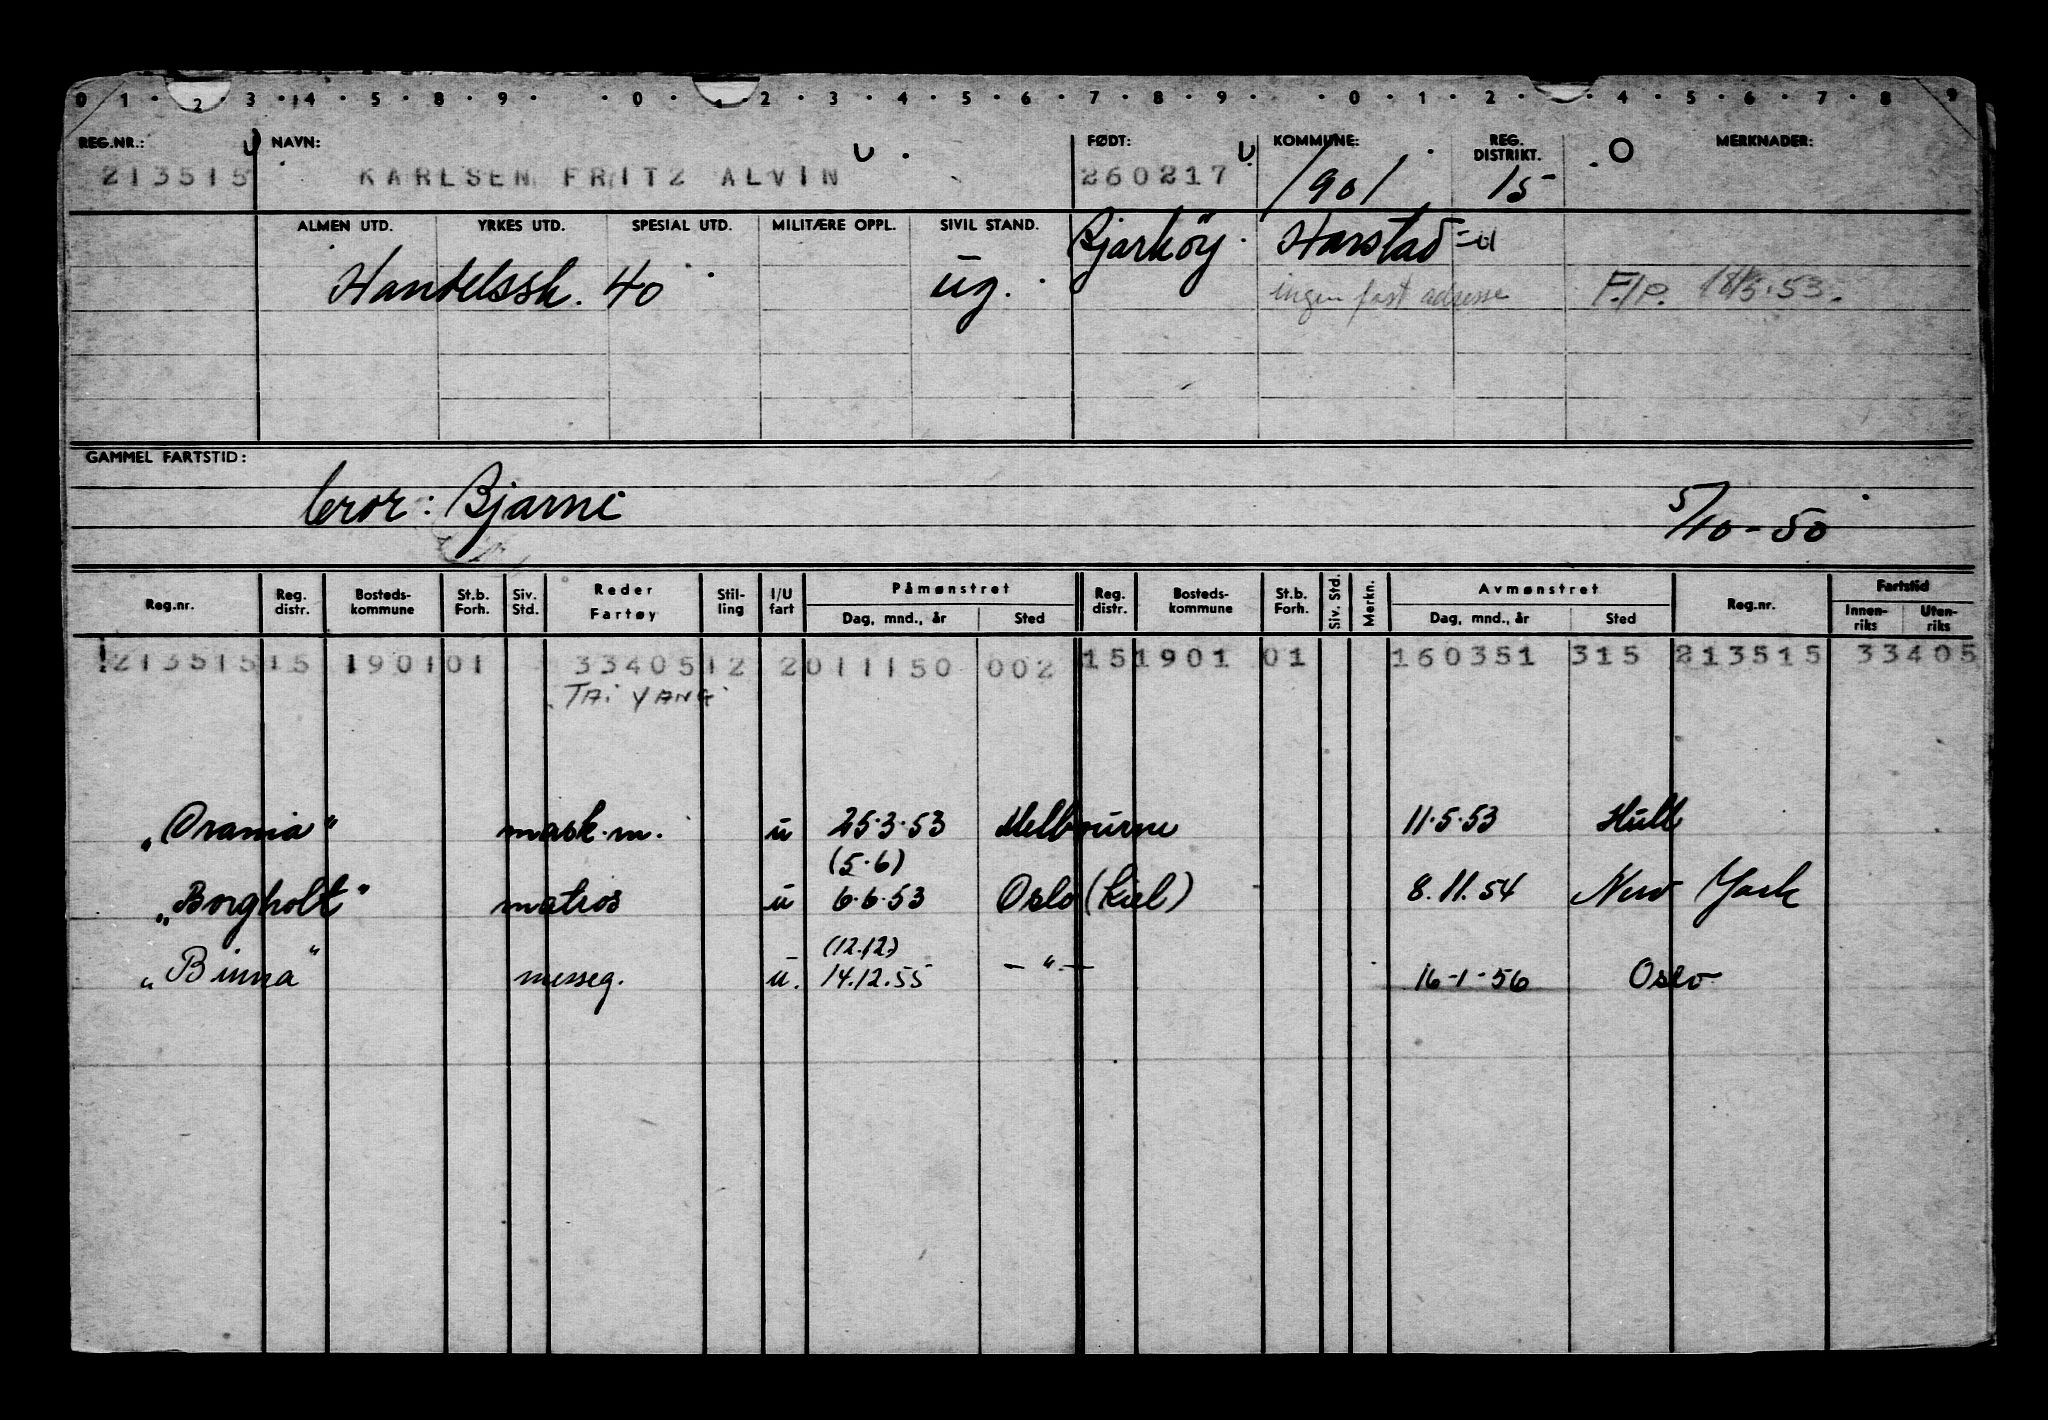 0 1 · 2 · 3 · 4 · 5 · 8 · 9 · · 0 · 1 · 2 · 3 · 4 · 5 · 6 · 7 · 8 · 9 · · 0 · 1 · 2 · · 4 · 5 · 6 · 7 · 8 9
REG.NR.: NAVN: FØDT: KOMMUNE: REG. DISTRIKT. MERKNADER:
213515 KARLSEN FRITZ ALVIN 260217 1901 15
ALMEN UTD. YRKES UTD. SPESIAL UTD. MILITÆRE OPPL. SIVIL STAND. Bjarköy Harstad
Handelssk. 40 ug. ingen fast adresse F.P. 18/5.53.
GAMMEL FARTSTID:
bror: Bjarne 5/10-50
Reg.nr. Reg. distr. Bosteds- kommune St.b. Forh. Siv. Std. Reder Fartøy Stil- ling I/U fart Påmønstret Dag, mnd., år Sted Reg. distr. Bosteds- kommune St.b. Forh. Siv. Std. Merkn. Avmønstret Dag, mnd., år Sted Reg.nr. Fartstid Innen- riks Uten- riks
213515 15 1901 01 33405 12 2 011150 002 15 1901 01 160351 315 213515 33405
TAI YANG
"Orania" mask.m. u 25.3.53 Melbourne 11.5.53 Hull
(5.6)
"Borgholt" matros u 6.6.53 Oslo (Kiel) 8.11.54 New York
(12.12)
"Binna" messeg. u. 14.12.55 — " — 16-1-56 Oslo